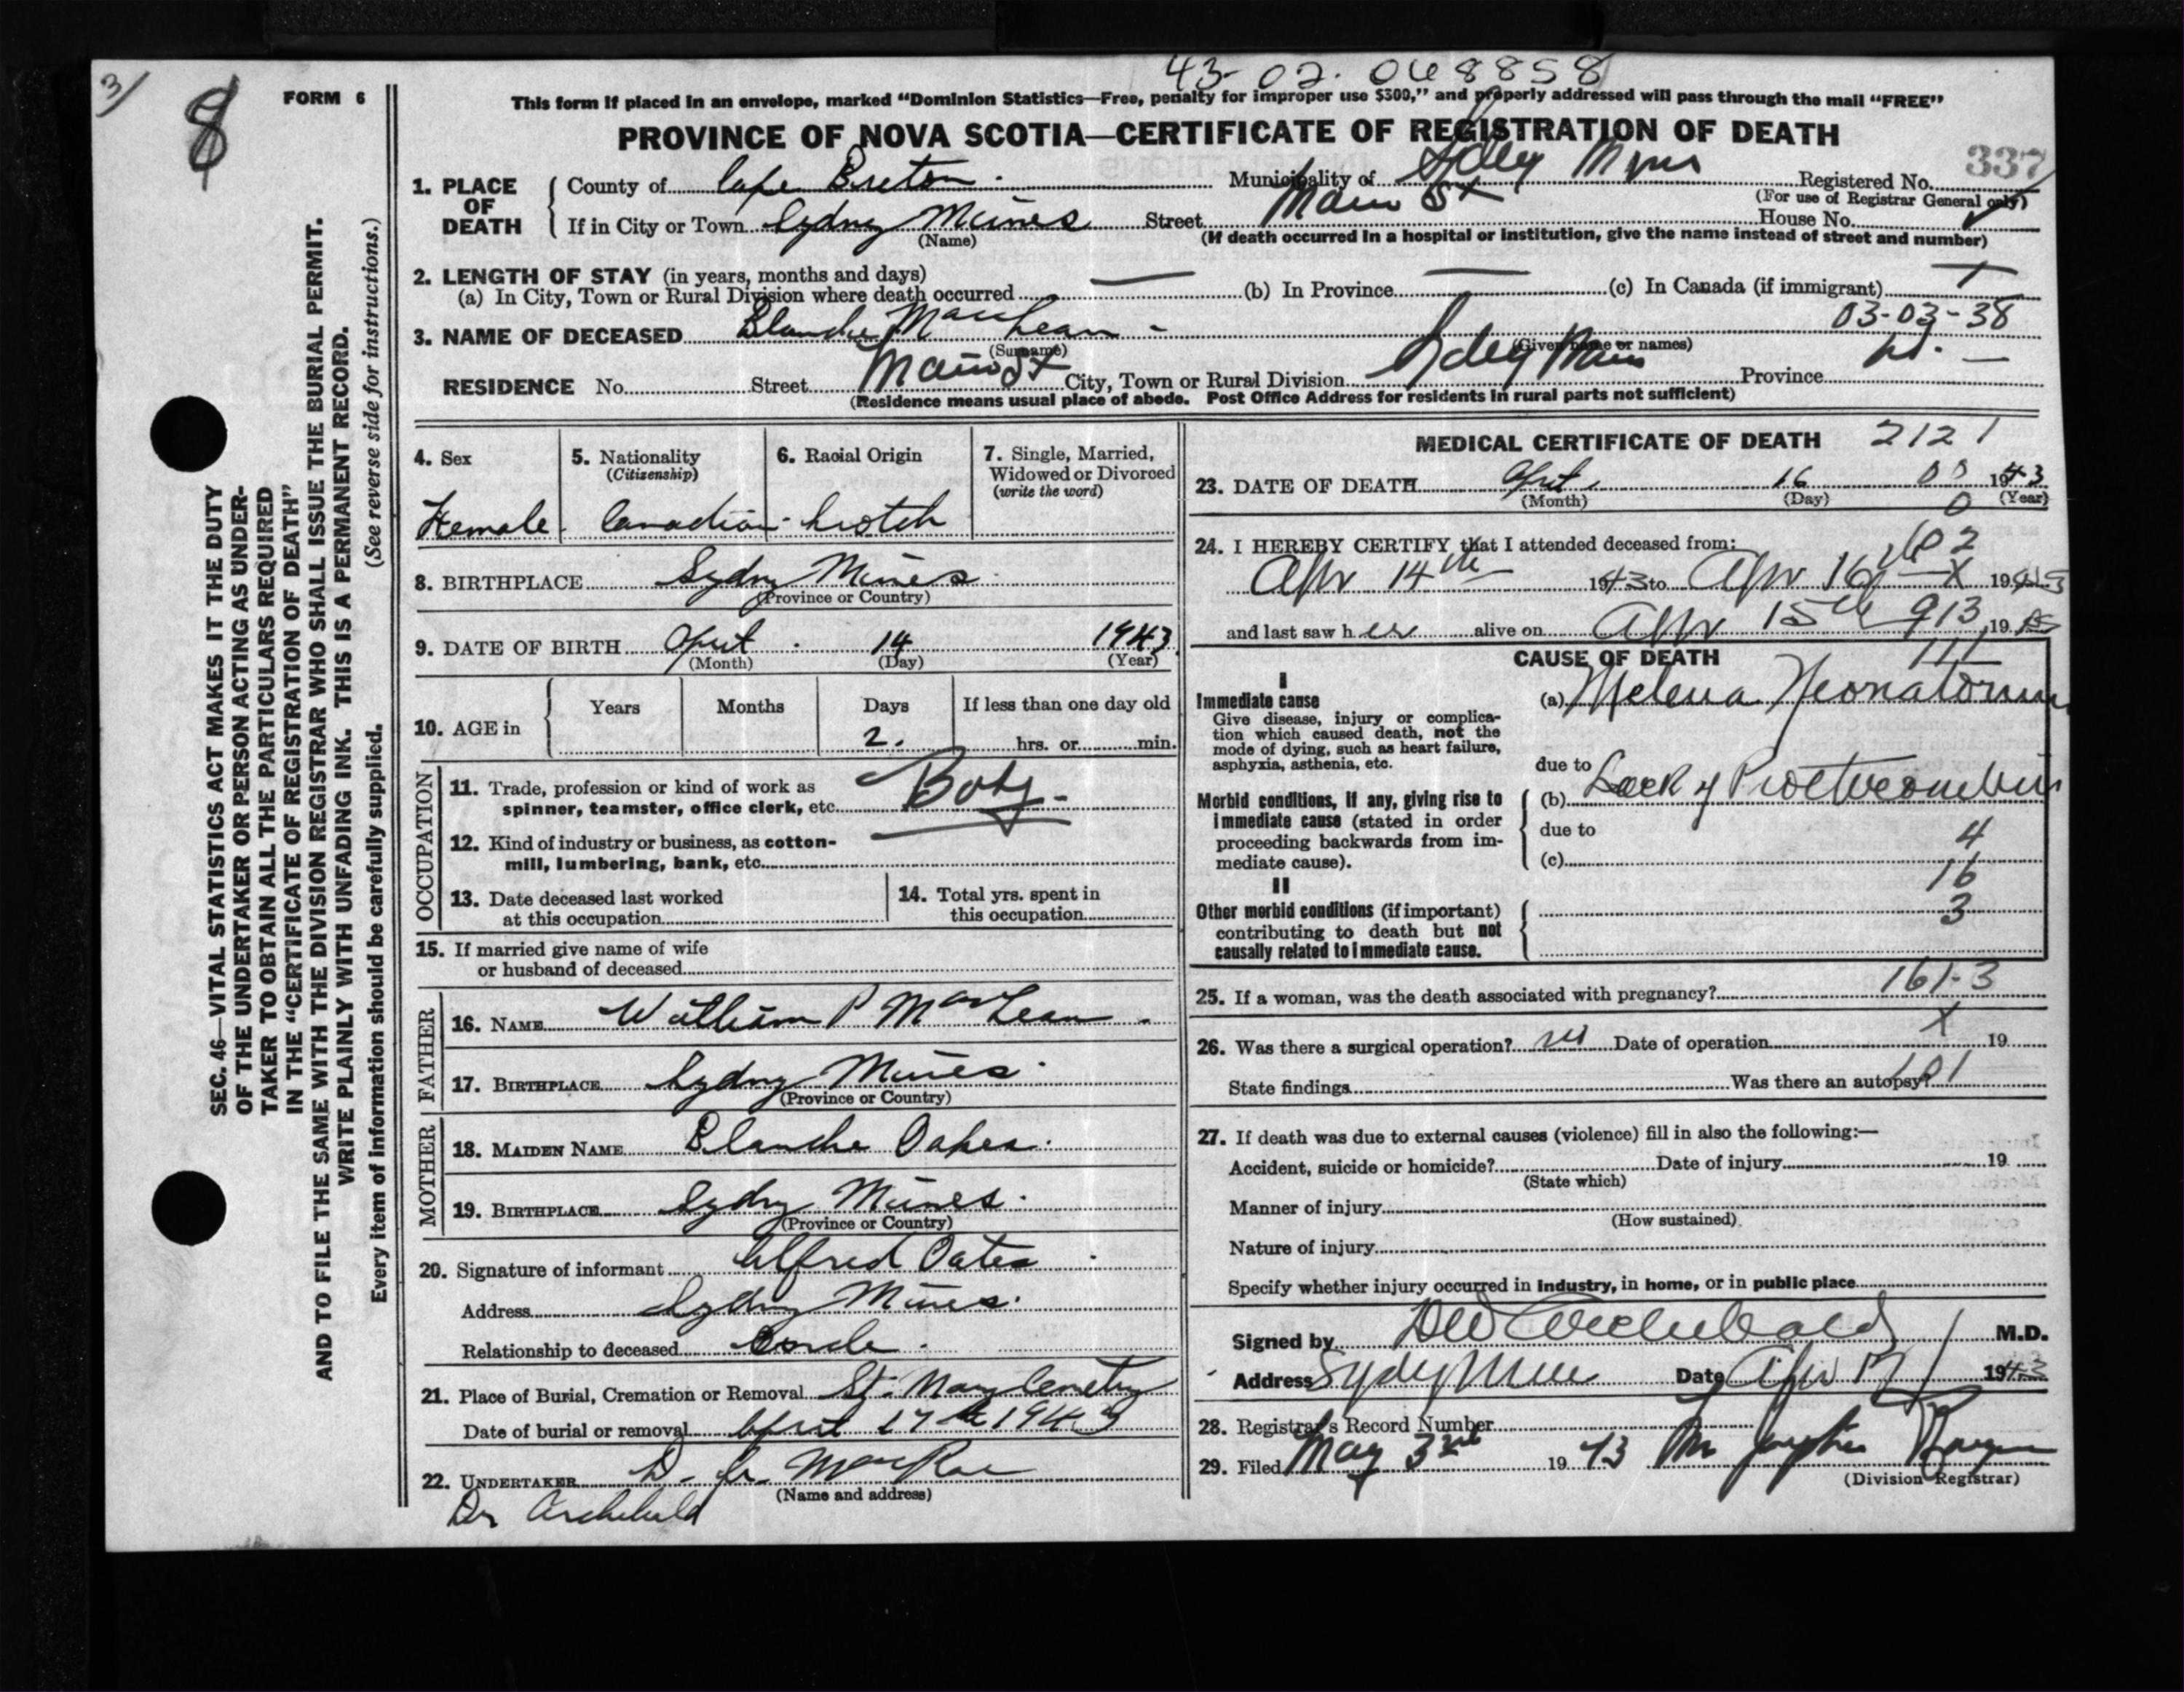 43-02-068858
3/
8
FORM 6
This form if placed in an envelope, marked "Dominion Statistics—Free, penalty for improper use $300," and properly addressed will pass through the mail "FREE"
PROVINCE OF NOVA SCOTIA—CERTIFICATE OF REGISTRATION OF DEATH
337
1. PLACE OF DEATH
County of Cape Breton. Municipality of Sydney Mines Registered No.
(For use of Registrar General only)
If in City or Town Sydny Mines Street Main St House No.
(Name)
(If death occurred in a hospital or institution, give the name instead of street and number)
2. LENGTH OF STAY (in years, months and days)
(a) In City, Town or Rural Division where death occurred — (b) In Province — (c) In Canada (if immigrant)
03-03-38
3. NAME OF DECEASED Blanche MacLean -
(Surname) (Given name or names)
RESIDENCE No. Street Main St City, Town or Rural Division Province
(Residence means usual place of abode. Post Office Address for residents in rural parts not sufficient)
4. Sex
Female
5. Nationality
(Citizenship)
Canadian
6. Racial Origin
Scotch
7. Single, Married,
Widowed or Divorced
(write the word)
8. BIRTHPLACE Sydny Mines
(Province or Country)
9. DATE OF BIRTH April 14 1943
(Month) (Day) (Year)
10. AGE in
Years Months Days If less than one day old
2. hrs. or min.
OCCUPATION
11. Trade, profession or kind of work as
spinner, teamster, office clerk, etc. Baby -
12. Kind of industry or business, as cotton-
mill, lumbering, bank, etc.
13. Date deceased last worked
at this occupation
14. Total yrs. spent in
this occupation
15. If married give name of wife
or husband of deceased
FATHER
16. NAME William P MacLean
17. BIRTHPLACE Sydny Mines
(Province or Country)
MOTHER
18. MAIDEN NAME Blanche Oakes
19. BIRTHPLACE Sydny Mines
(Province or Country)
20. Signature of informant Alfred Oates
Address Sydny Mines
Relationship to deceased
21. Place of Burial, Cremation or Removal St. Mary Cemetry
Date of burial or removal April 17th 1943
22. UNDERTAKER MacRae
(Name and address)
Dr Archibald
MEDICAL CERTIFICATE OF DEATH 2121
23. DATE OF DEATH April 16 00 1943
(Month) (Day) (Year)
0
24. I HEREBY CERTIFY that I attended deceased from:
Apr 14th 1943 to Apr 16th X 1943
and last saw her alive on Apr 15th 913 19
111
CAUSE OF DEATH
I
Immediate cause
Give disease, injury or complica-
tion which caused death, not the
mode of dying, such as heart failure,
asphyxia, asthenia, etc.
(a) Melena Neonatorum
due to
Morbid conditions, if any, giving rise to
immediate cause (stated in order
proceeding backwards from im-
mediate cause).
(b) Lack of
due to
4
(c)
16
II
Other morbid conditions (if important)
contributing to death but not
causally related to immediate cause.
3
25. If a woman, was the death associated with pregnancy? 161-3
26. Was there a surgical operation? no Date of operation X 19
State findings Was there an autopsy? 101
27. If death was due to external causes (violence) fill in also the following:—
Accident, suicide or homicide? Date of injury 19
(State which)
Manner of injury
(How sustained)
Nature of injury
Specify whether injury occurred in Industry, in home, or in public place
Signed by Archibald M.D.
Address Date Apr 17 1943
28. Registrar's Record Number
29. Filed May 3rd 1943
(Division Registrar)
SEC. 46—VITAL STATISTICS ACT MAKES IT THE DUTY
OF THE UNDERTAKER OR PERSON ACTING AS UNDER-
TAKER TO OBTAIN ALL THE PARTICULARS REQUIRED
IN THE "CERTIFICATE OF REGISTRATION OF DEATH"
AND TO FILE THE SAME WITH THE DIVISION REGISTRAR WHO SHALL ISSUE THE BURIAL PERMIT.
WRITE PLAINLY WITH UNFADING INK. THIS IS A PERMANENT RECORD.
Every item of information should be carefully supplied. (See reverse side for instructions.)